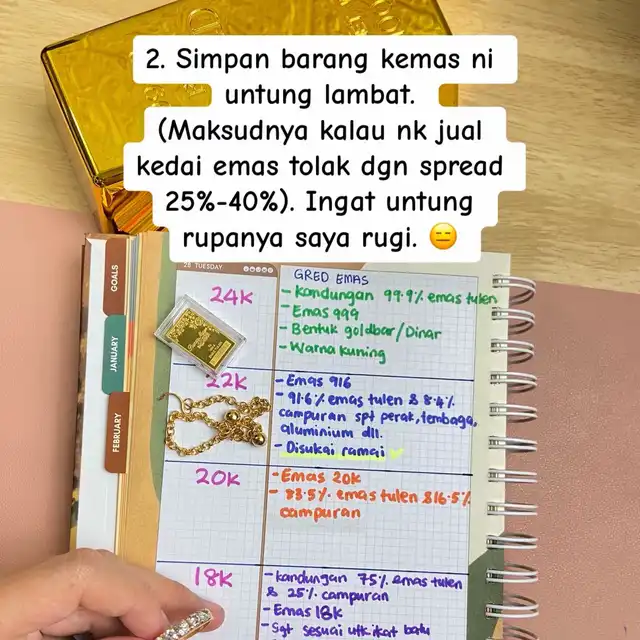 2. Simpan barang kemas ni
untung lambat.
(Maksudnya kalau nk jual
kedai emas tolak dgn spread
25%-40%). Ingat untung
rupanya saya rugi. 😑
GOALS
JANUARY
FEBRUARY
28 TUESDAY
GRED EMAS
24K
- Kandungan 99.9% emas tulen
- Emas 999
- Bentuk goldbar/Dinar
- Warna kuning
22K
- Emas 916
- 91.6% emas tulen & 8.4%
campuran spt perak, tembaga,
aluminium dll.
- Disukai ramai
20K
- Emas 20K
- 83.5% emas tulen &16.5%
campuran
18K
- kandungan 75% emas tulen
& 25% campuran
- Emas 18K
- Sgt sesuai utk ikat batu